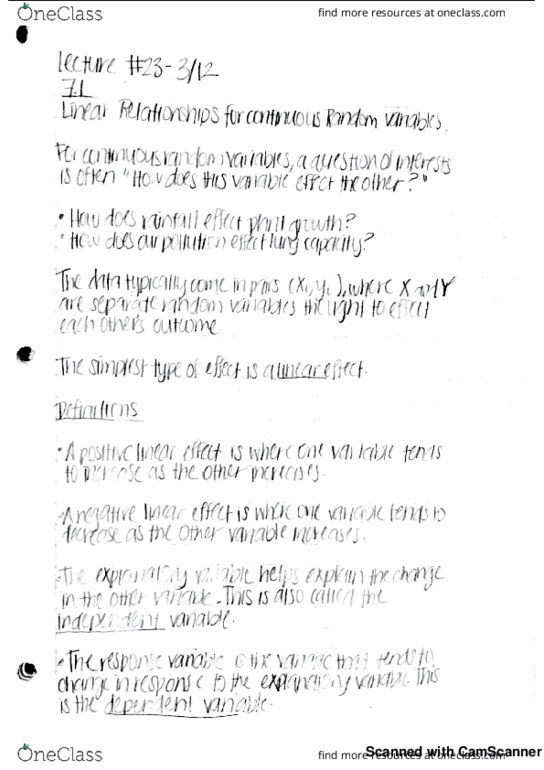 OneClass
find more resources at oneclass.com
Lecture #23 - 3/12
7.1
Linear Relationships for continuous Random variables.
For continuous random variables, a question of interests
is often "How does this variable effect the other?"
• How does rainfall effect plant growth?
• How does air pollution effect lung capacity?
The data typically come in pairs (xi, yi), where X and Y
are separate random variables the right to effect
each other's outcome
The simplest type of effect is a linear effect.
Definitions
• A positive linear effect is where one variable tends
to increase as the other increases.
• A negative linear effect is where one variable tends to
decrease as the other variable increases.
• The explanatory variable helps explain the change
in the other variable. This is also called the
independent variable.
• The response variable is the variable that tends to
change in response to the explanatory variable. This
is the dependent variable.
OneClass
find more resources at oneclass.com
Scanned with CamScanner